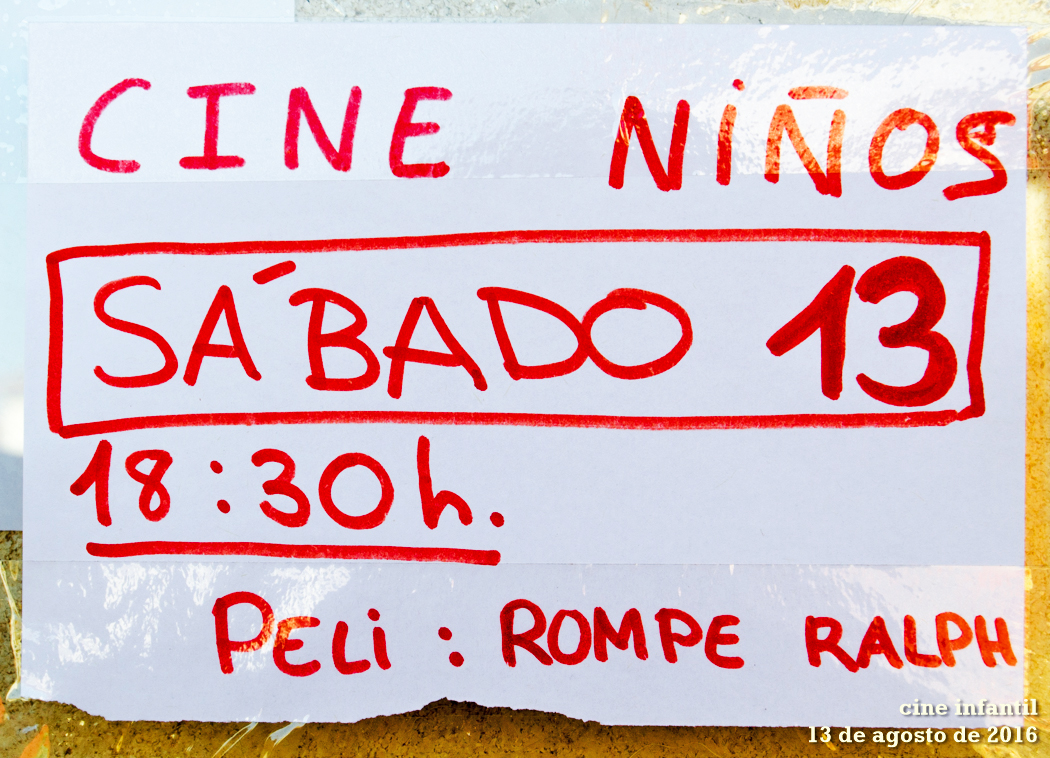 CINE NIÑOS
SÁBADO 13
18:30h.
PELi: ROMPE RALPH
cine infantil
13 de agosto de 2016